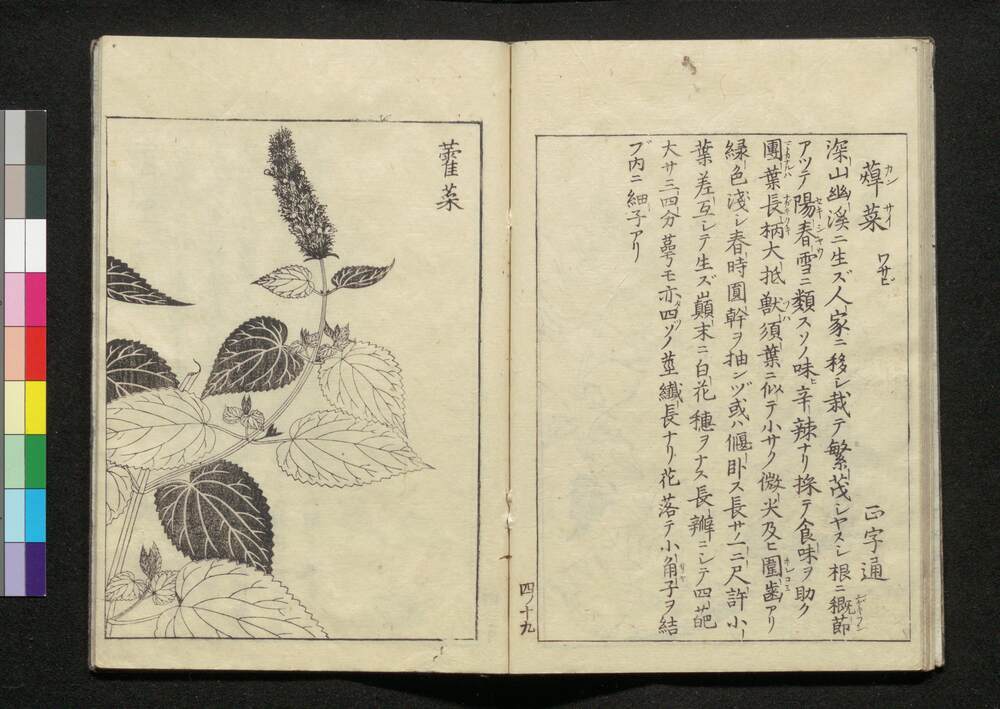 蔊菜 ワサビ 正字通
カン サイ
深山幽溪ニ生ズ人家ニ移シ栽テ繁茂シヤスシ根ニ節
アツテ陽春雪ニ類スソノ味辛辣ナリ採テ食味ヲ助ク
セキシヤウ
團葉長柄大抵獣須葉ニ似テ小サク微尖及ヒ圍歯アリ
ツハ
キレコミ
緑色淺シ春時圓幹ヲ抽ンヅ或ハ偃臥ス長サ一二尺許小
葉差互シテ生ズ巓末ニ白花穗ヲナス長瓣ニシテ四葩
大サ三四分萼モ亦四ツノ莖纖長ナリ花落テ小角子ヲ結
ブ内ニ細子アリ
四ノ十九
藿菜